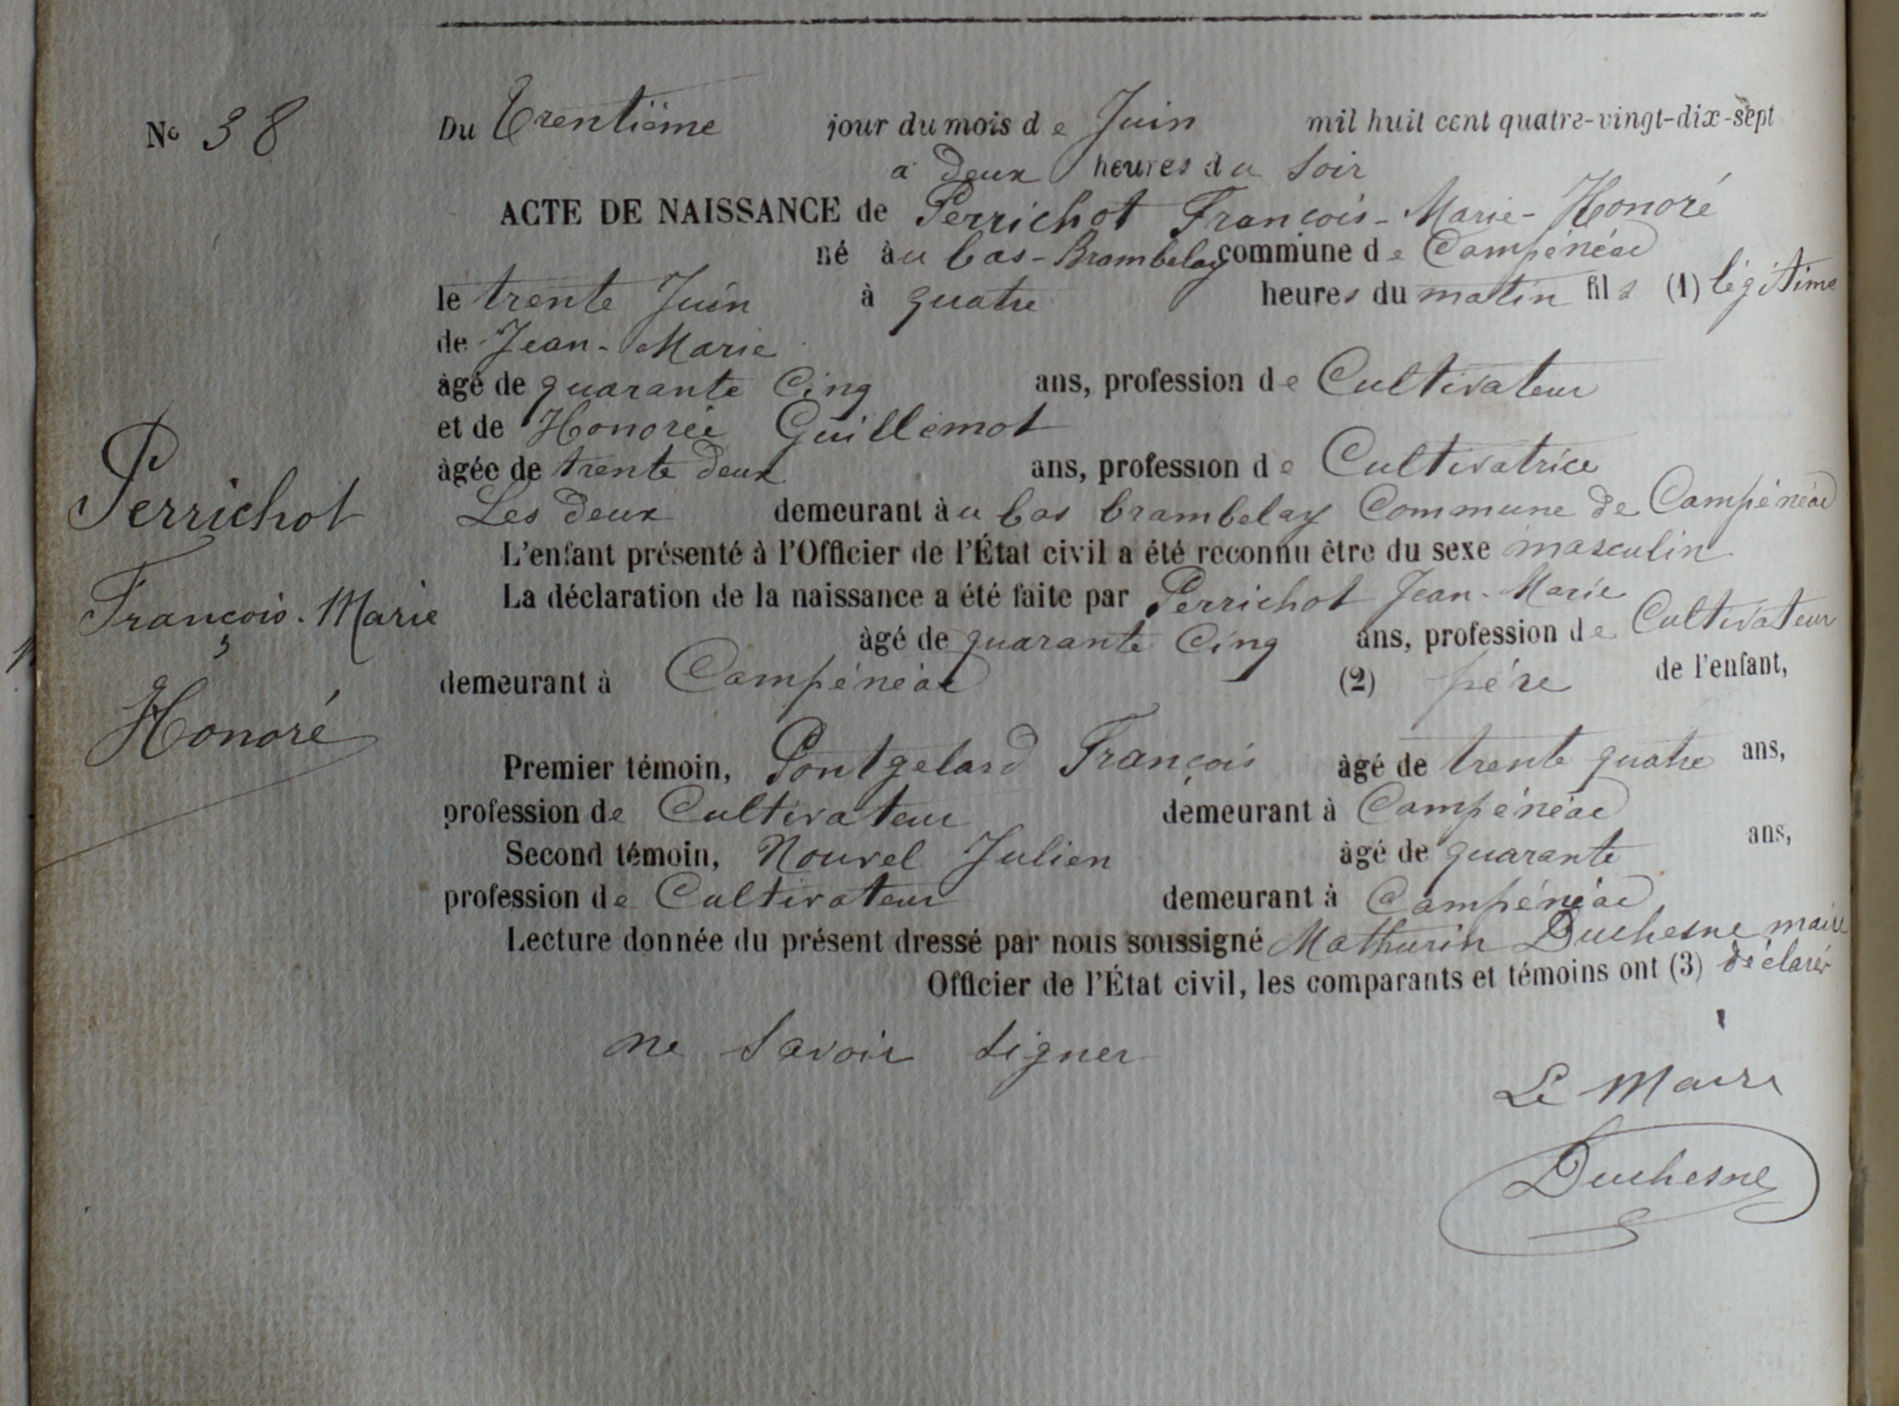 No 38
Du trentième jour du mois de Juin mil huit cent quatre-vingt-dix-sept
à deux heures du Soir
ACTE DE NAISSANCE de Perrichot François-Marie-Honoré
né au bas-Brambelay commune de Campénéac
le trente Juin à quatre heures du matin fils (1) légitime
de Jean-Marie
âgé de quarante Cinq ans, profession de Cultivateur
et de Honorée Guillemot
âgée de trente deux ans, profession de Cultivatrice
Les deux demeurant au bas brambelay Commune de Campénéac
L'enfant présenté à l'Officier de l'État civil a été reconnu être du sexe masculin
La déclaration de la naissance a été faite par Perrichot Jean-Marie
âgé de quarante Cinq ans, profession de Cultivateur
demeurant à Campénéac (2) père de l'enfant,
Premier témoin, Pontgelard François âgé de trente quatre ans,
profession de Cultivateur demeurant à Campénéac
Second témoin, Nouvel Julien âgé de quarante ans,
profession de Cultivateur demeurant à Campénéac
Lecture donnée du présent dressé par nous soussigné Mathurin Duchesne maire
Officier de l'État civil, les comparants et témoins ont (3) déclaré
ne Savoir signer
Le Maire
Duchesne
Perrichot
François-Marie
Honoré